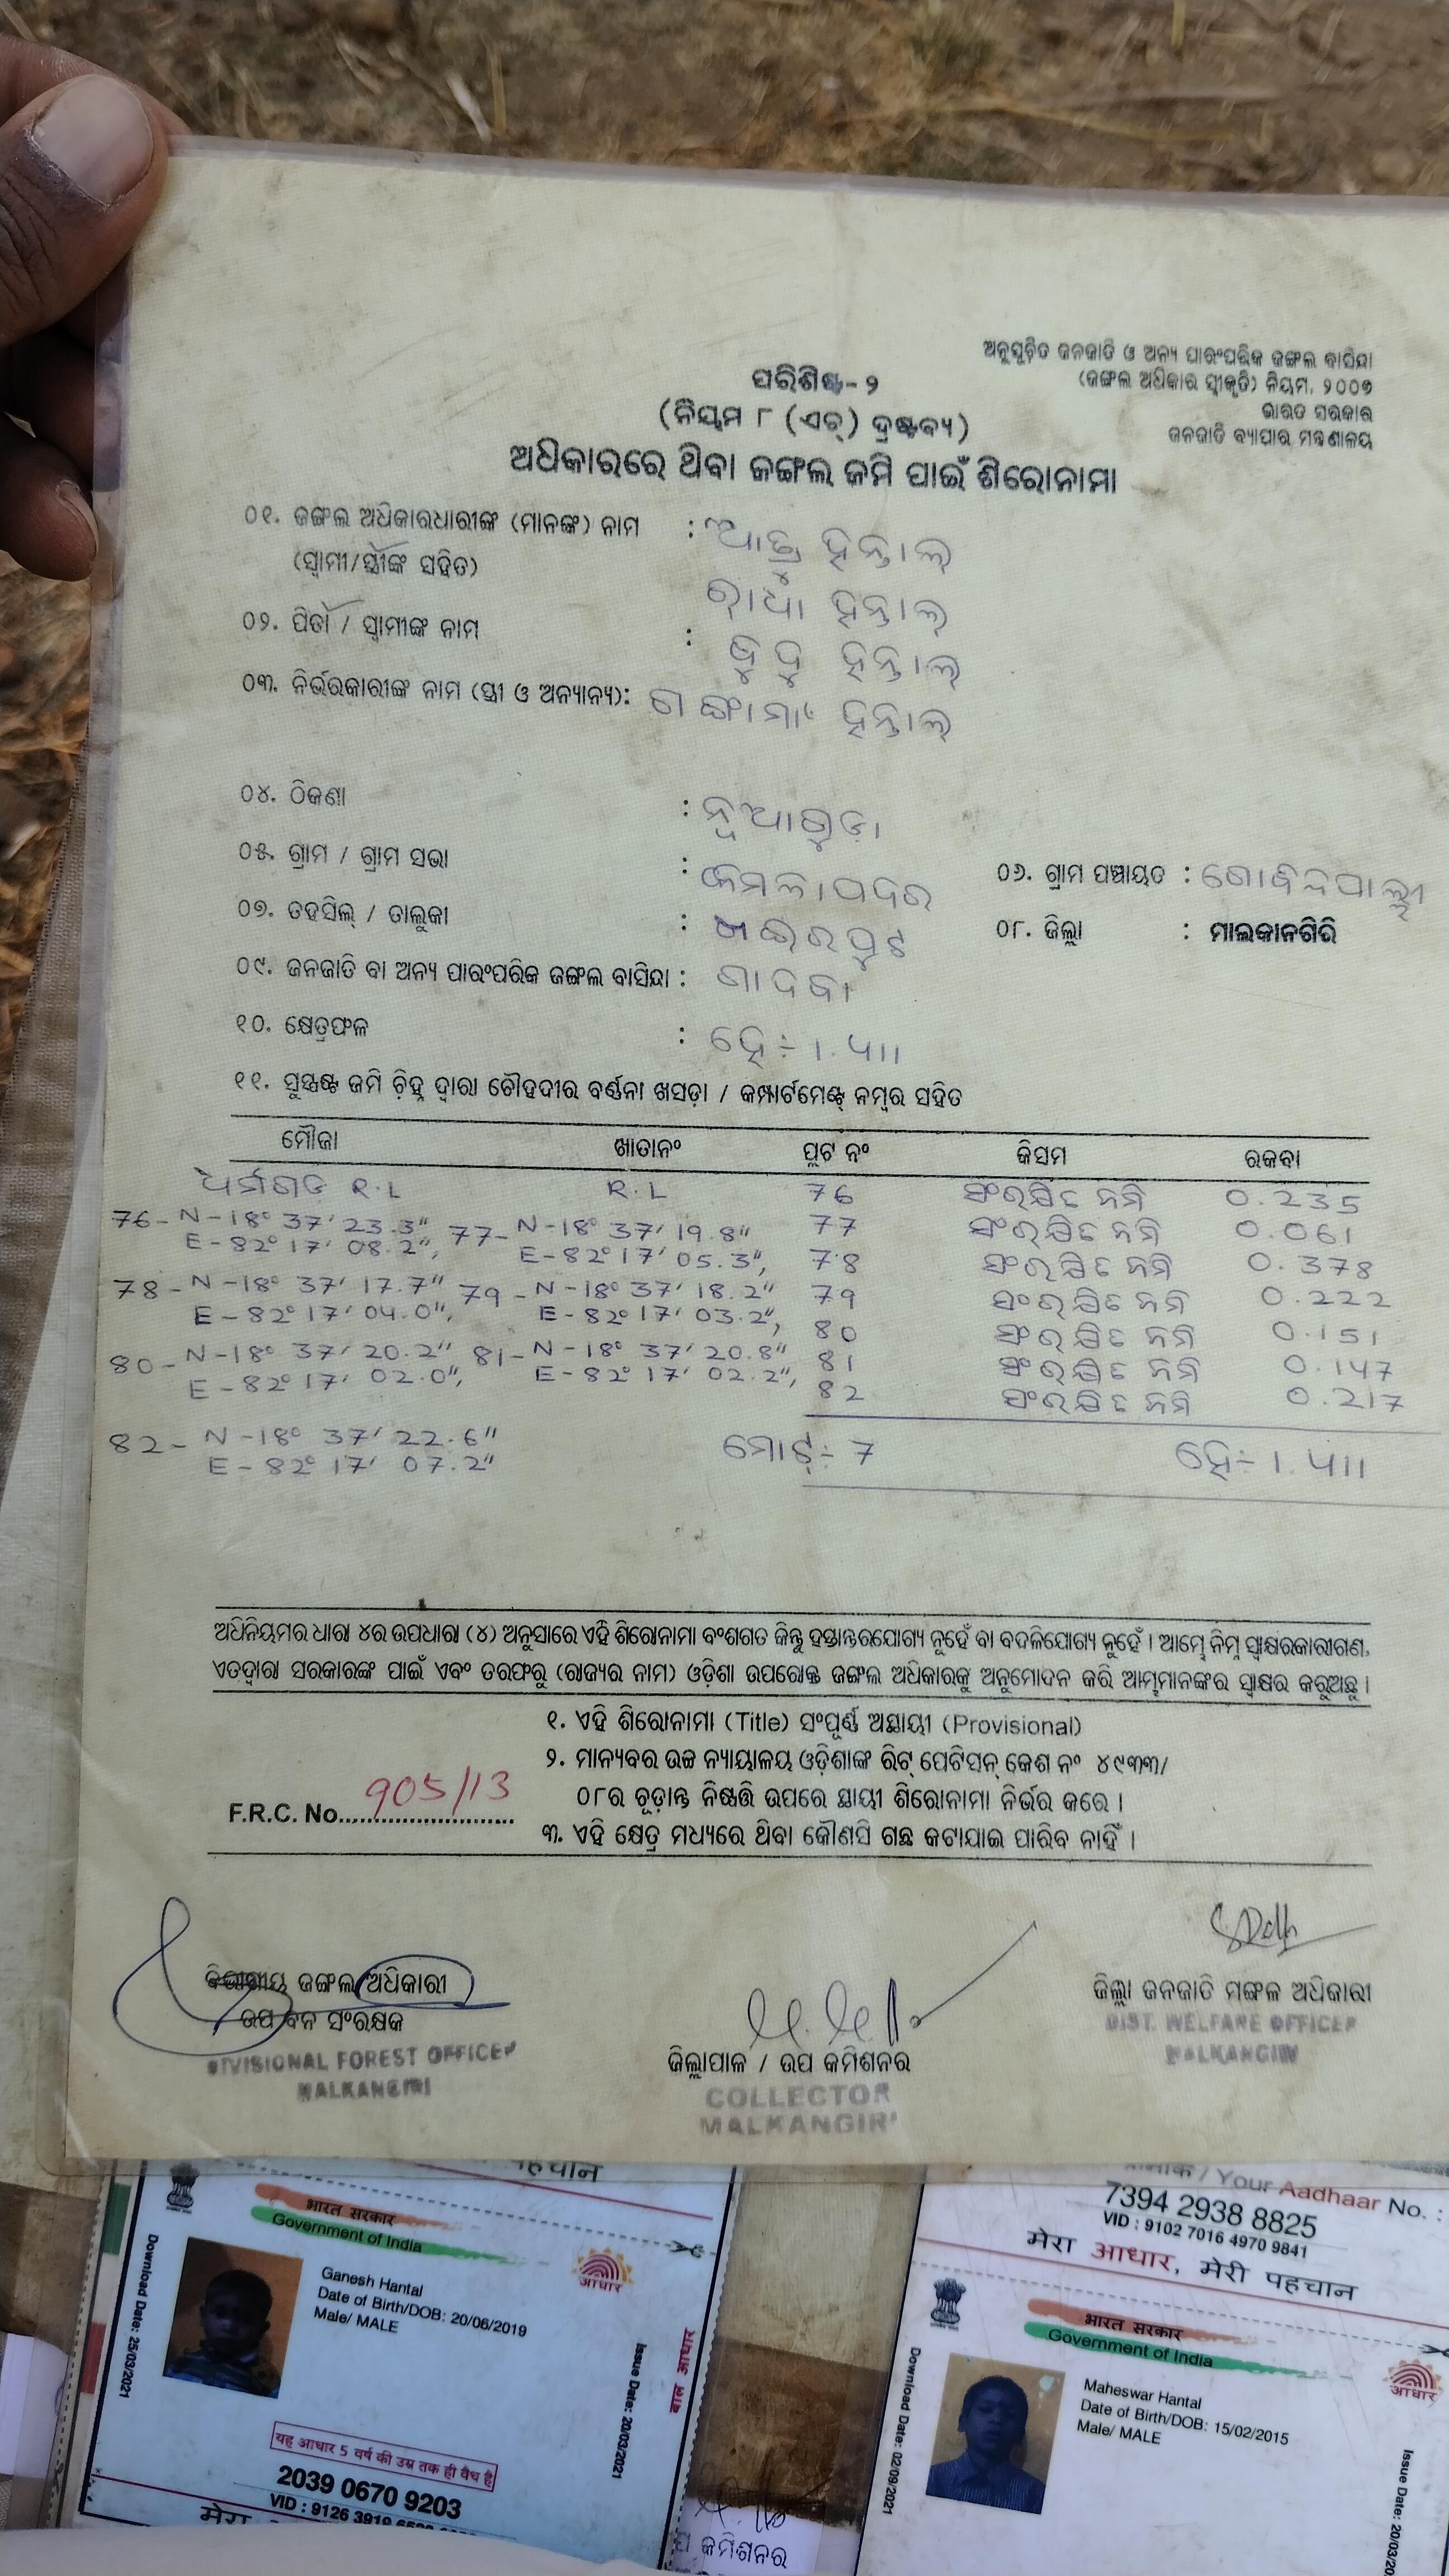 ଅନୁସୂଚିତ ଜନଜାତି ଓ ଅନ୍ୟ ପାରଂପରିକ ଜଙ୍ଗଲ ବାସିନ୍ଦା
(ଜଙ୍ଗଲ ଅଧିକାର ସ୍ୱୀକୃତି) ନିୟମ, ୨୦୦୭
ଭାରତ ସରକାର
ଜନଜାତି ବ୍ୟାପାର ମନ୍ତ୍ରଣାଳୟ
ପରିଶିଷ୍ଟ-୨
(ନିୟମ ୮ (ଏଚ୍) ଦ୍ରଷ୍ଟବ୍ୟ)
ଅଧିକାରରେ ଥିବା ଜଙ୍ଗଲ ଜମି ପାଇଁ ଶିରୋନାମା
୦୧. ଜଙ୍ଗଲ ଅଧିକାରଧାରୀଙ୍କ (ମାନଙ୍କ) ନାମ : ହନ୍ତାଲ୍
(ସ୍ୱାମୀ/ସ୍ତ୍ରୀଙ୍କ ସହିତ) ରାଧା ହନ୍ତାଲ୍
୦୨. ପିତା / ସ୍ୱାମୀଙ୍କ ନାମ : ହନ୍ତାଲ୍
୦୩. ନିର୍ଭରକାରୀଙ୍କ ନାମ (ସ୍ତ୍ରୀ ଓ ଅନ୍ୟାନ୍ୟ): ହନ୍ତାଲ୍
୦୪. ଠିକଣା : ନୂଆଗୁଡ଼ା
୦୫. ଗ୍ରାମ / ଗ୍ରାମ ସଭା : କମଳାପଦର
୦୬. ଗ୍ରାମ ପଞ୍ଚାୟତ : ଗୋବିନ୍ଦପାଲ୍ଲୀ
୦୭. ତହସିଲ୍ / ତାଲୁକା : ଖଇରପୁଟ
୦୮. ଜିଲ୍ଲା : ମାଲକାନଗିରି
୦୯. ଜନଜାତି ବା ଅନ୍ୟ ପାରଂପରିକ ଜଙ୍ଗଲ ବାସିନ୍ଦା : ଗାଦବା
୧୦. କ୍ଷେତ୍ରଫଳ : ହେ÷ 1.411
୧୧. ସୁସ୍ପଷ୍ଟ ଜମି ଚିହ୍ନ ଦ୍ୱାରା ଚୌହଦୀର ବର୍ଣ୍ଣନା ଖସଡ଼ା / କମ୍ପାର୍ଟମେଣ୍ଟ୍ ନମ୍ବର ସହିତ
ମୌଜା ଖାତାନଂ ପ୍ଲଟ ନଂ କିସମ ରକବା
ଧର୍ମଗଡ R.L R.L 76 ସଂରକ୍ଷିତ ଜମି 0.235
76- N-18° 37' 23.3" 77- N-18° 37' 19.8" 77 ସଂରକ୍ଷିତ ଜମି 0.061
E-82° 17' 08.2", E-82° 17' 05.3", 78 ସଂରକ୍ଷିତ ଜମି 0.378
78- N-18° 37' 17.7" 79- N-18° 37' 18.2" 79 ସଂରକ୍ଷିତ ଜମି 0.222
E-82° 17' 04.0", E-82° 17' 03.2", 80 ସଂରକ୍ଷିତ ଜମି 0.151
80- N-18° 37' 20.2" 81- N-18° 37' 20.8" 81 ସଂରକ୍ଷିତ ଜମି 0.147
E-82° 17' 02.0", E-82° 17' 02.2", 82 ସଂରକ୍ଷିତ ଜମି 0.217
82- N-18° 37' 22.6" ମୋଟ୍÷ 7 ହେ÷ 1.411
E-82° 17' 07.2"
ଅଧିନିୟମର ଧାରା ୪ର ଉପଧାରା (୪) ଅନୁସାରେ ଏହି ଶିରୋନାମା ବଂଶଗତ କିନ୍ତୁ ହସ୍ତାନ୍ତରଯୋଗ୍ୟ ନୁହେଁ ବା ବଦଳିଯୋଗ୍ୟ ନୁହେଁ । ଆମ୍ଭେ ନିମ୍ନ ସ୍ୱାକ୍ଷରକାରୀଗଣ,
ଏତଦ୍ୱାରା ସରକାରଙ୍କ ପାଇଁ ଏବଂ ତରଫରୁ (ରାଜ୍ୟର ନାମ) ଓଡ଼ିଶା ଉପରୋକ୍ତ ଜଙ୍ଗଲ ଅଧିକାରକୁ ଅନୁମୋଦନ କରି ଆମ୍ଭମାନଙ୍କର ସ୍ୱାକ୍ଷର କରୁଅଛୁ ।
୧. ଏହି ଶିରୋନାମା (Title) ସଂପୂର୍ଣ୍ଣ ଅସ୍ଥାୟୀ (Provisional)
୨. ମାନ୍ୟବର ଉଚ୍ଚ ନ୍ୟାୟାଳୟ ଓଡ଼ିଶାଙ୍କ ରିଟ୍ ପେଟିସନ୍ କେଶ ନଂ ୪୯୩୩/
୦୮ର ଚୂଡ଼ାନ୍ତ ନିଷ୍ପତ୍ତି ଉପରେ ସ୍ଥାୟୀ ଶିରୋନାମା ନିର୍ଭର କରେ ।
F.R.C. No. 905/13
୩. ଏହି କ୍ଷେତ୍ର ମଧ୍ୟରେ ଥିବା କୌଣସି ଗଛ କଟାଯାଇ ପାରିବ ନାହିଁ ।
ବିଭାଗୀୟ ଜଙ୍ଗଲ ଅଧିକାରୀ
ଉପ ବନ ସଂରକ୍ଷକ
DIVISIONAL FOREST OFFICER
MALKANGIRI
ଜିଲ୍ଲାପାଳ / ଉପ କମିଶନର
COLLECTOR
MALKANGIRI
ଜିଲ୍ଲା ଜନଜାତି ମଙ୍ଗଳ ଅଧିକାରୀ
DIST. WELFARE OFFICER
MALKANGIRI
पहचान
भारत सरकार
Government of India
आधार
Ganesh Hantal
Date of Birth/DOB: 20/06/2019
Male/ MALE
Download Date: 25/03/2021
Issue Date: 20/03/2021
बाल आधार
यह आधार 5 वर्ष की उम्र तक ही वैध है
2039 0670 9203
VID : 9126 3919
मेरा
ଉପ କମିଶନର
/ Your Aadhaar No. :
7394 2938 8825
VID : 9102 7016 4970 9841
मेरा आधार, मेरी पहचान
भारत सरकार
Government of India
आधार
Maheswar Hantal
Date of Birth/DOB: 15/02/2015
Male/ MALE
Download Date: 02/09/2021
Issue Date: 20/03/20